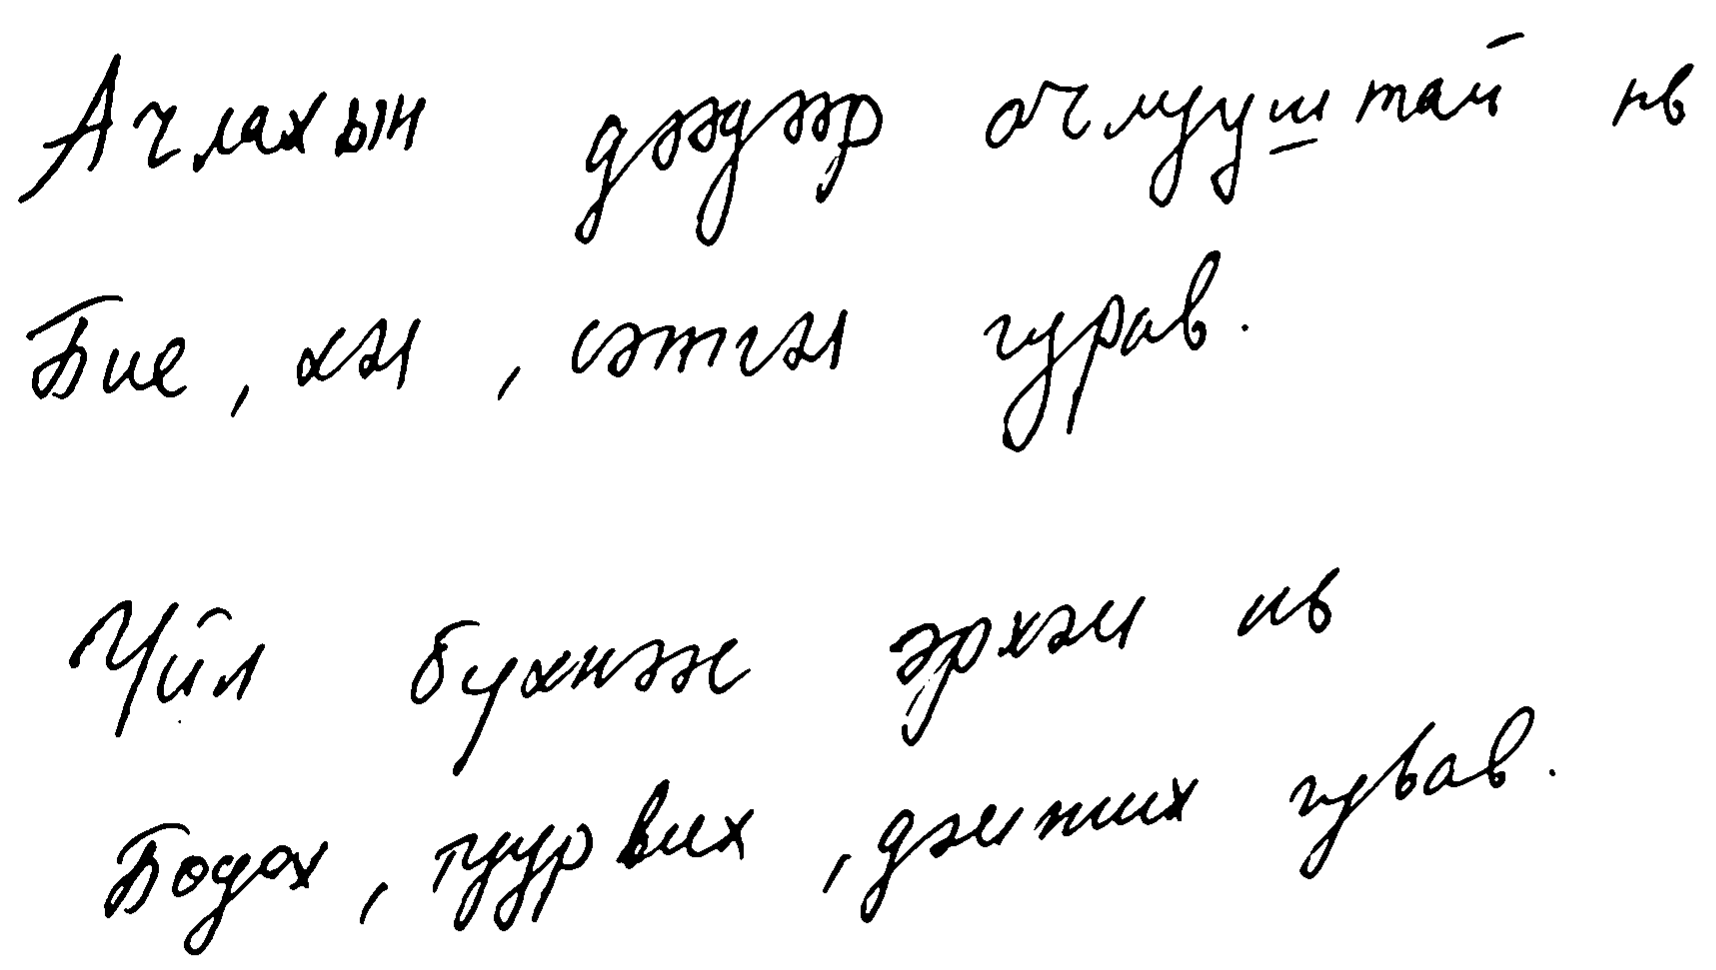 Ачлахын дээдээр ачлууштай нь
Бие, хэл, сэтгэл гурав.
Үйл бүхнээс эрхэм нь
Бодох, туурвих, дэмжих гурав.